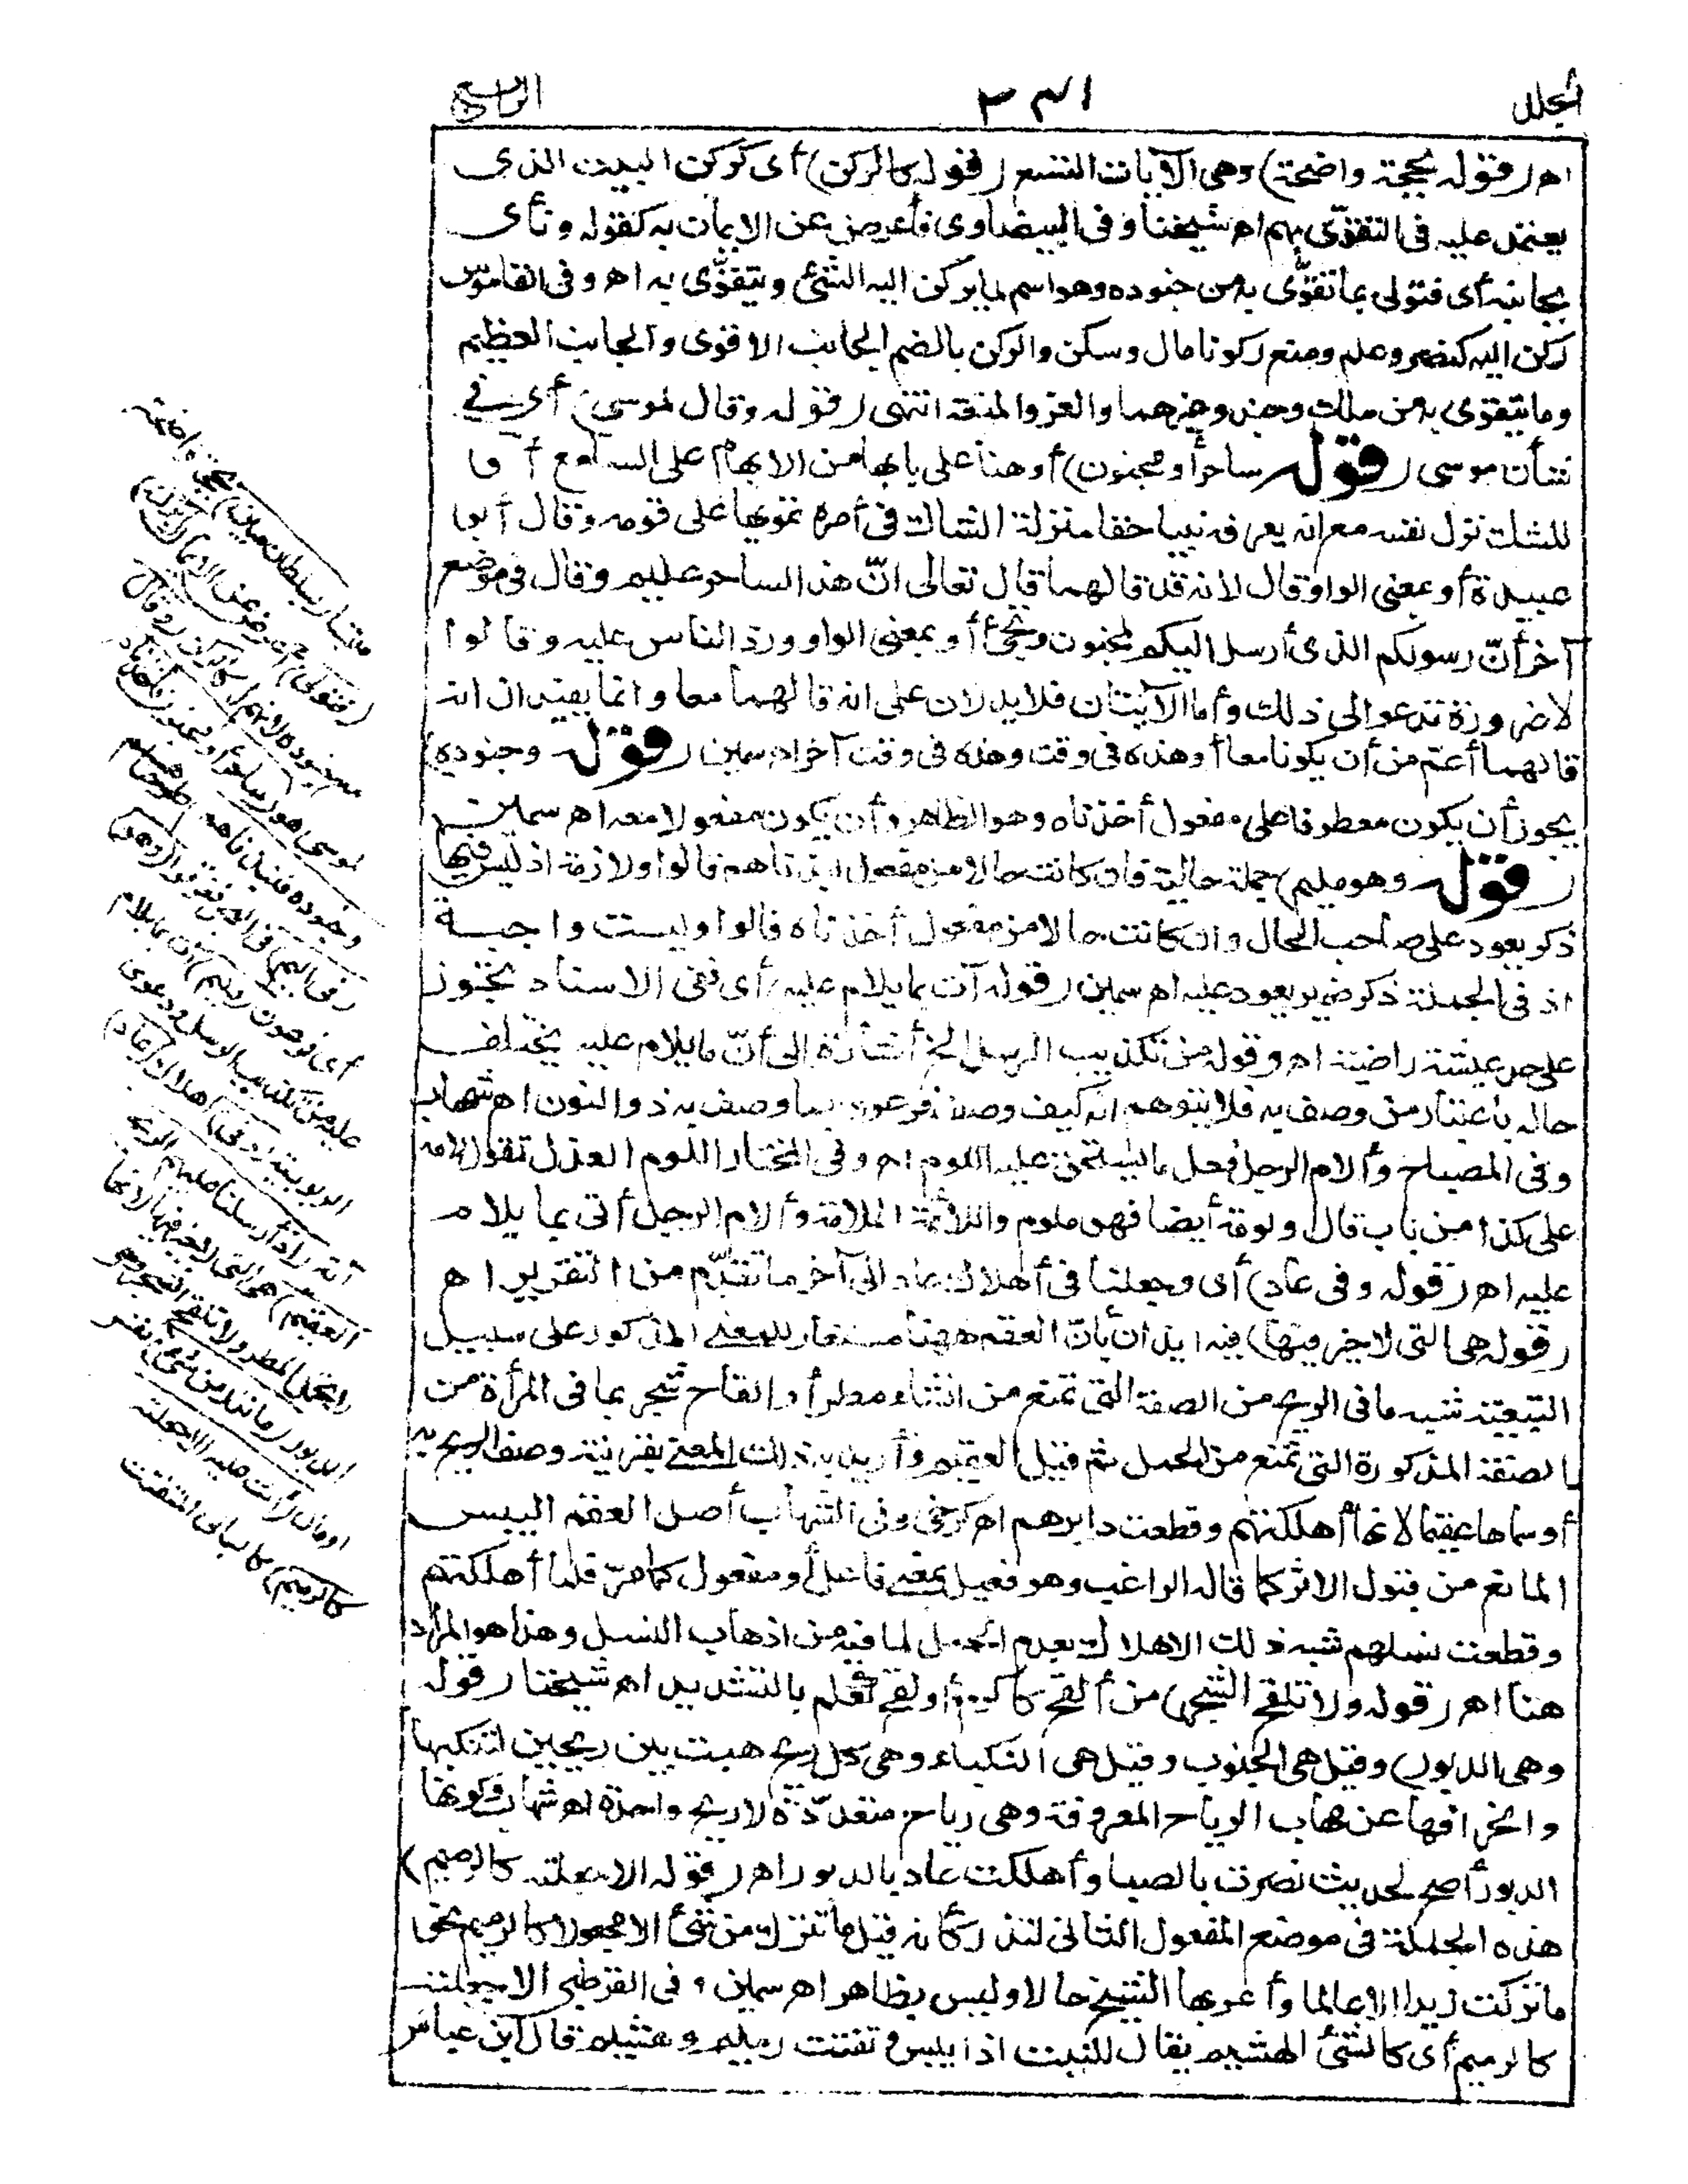 المجلد
الرابع
اه (قوله بحجة واضحة) وهى الآيات التسع (قوله كالركن) أى كركن البيت الذى
يعتمد عليه فى التقوّى بهم اه شيخنا وفى البيضاوى فأعرض عن الايمان به كقوله ونأى
بجانبه أى فتولى بما تقوّى به من جنوده وهو اسم لما يركن اليه الشئ ويتقوّى به اه وفى القاموس
ركن اليه كنصر وعلم ومنع ركونا مال وسكن والركن بالضم الجانب الاقوى والجانب العظيم
وما يتقوى به من ملك وجند وغيرهما والعز والمنعة انتهى (قوله وقال لموسى) أى فى
شأن موسى (قوله ساحر أو مجنون) أو هنا على بابها من الابهام على السامع أو
للشك نزل نفسه مع انه يعرفه نبيا حقا منزلة الشاك فى أمره تمويها على قومه وقال أبو
عبيدة أو بمعنى الواو قال لانه قد قالهما قال تعالى انّ هذا لساحر عليم وقال فى موضع
آخر أنّ رسولكم الذى أرسل اليكم لمجنون وتجئ أو بمعنى الواو وردّ الناس عليه وقالوا
لا ضرورة تدعو الى ذلك وأما الآيتان فلا يدلان على انه قالهما معا وانما يفيد ان انه
قالهما أعم من أن يكونا معا أو هذه فى وقت وهذه فى وقت آخر اه سمين (قوله وجنوده)
يجوز أن يكون معطوفا على مفعول أخذناه وهو الظاهر وأن يكون مفعولا معه اه سمين
(قوله وهو مليم) جملة حالية فان كانت حالا من مفعول نبذناهم فالواو لازمة اذ ليس فيها
ذكر يعود على صاحب الحال وان كانت حالا من مفعول أخذناه فالواو ليست واجبة
اذ فى الجملة ذكر ضمير يعود عليه اه سمين (قوله آت بما يلام عليه) أى ففى الاسناد تجوز
على حد عيشة راضية اه وقوله من تكذيب الرسل الخ أشارة الى أنّ ما يلام عليه يختلف
حاله باعتبار من وصف به فلا يتوهم انه كيف وصف فرعون بما وصف به ذو النون اه شهاب
وفى المصباح وألام الرجل فعل ما يستحق عليه اللوم اه وفى المختار اللوم العذل تقول لامه
على كذا من باب قال ولومة أيضا فهو ملوم واللائمة الملامة وألام الرجل أتى بما يلام
عليه اه (قوله وفى عاد) أى وجعلنا فى أهلاك عاد الى آخر ما تقدّم من التقرير اه
(قوله هى التى لا خير فيها) فيه ايذان بانّ العقم ههنا مستعار للمعنى المذكور على سبيل
التبعية شبه ما فى الريح من الصفة التى تمنع من انشاء مطر أو القاح شجر بما فى المرأة من
الصفة المذكورة التى تمنع من الحمل ثم قيل العقيم وأريد به ذلك المعنى بقرينة وصف الريح به
أو سماها عقيما لانها أهلكتهم وقطعت دابرهم اه كرخى وفى الشهاب أصل العقم اليبس
المانع من قبول الاثر كما قاله الراغب وهو فعيل بمعنى فاعل أو مفعول كما مرّ فلما أهلكتهم
وقطعت نسلهم شبه ذلك الاهلاك بعدم الحمل لما فيه من اذهاب النسل وهذا هو المراد
هنا اه (قوله ولا تلقح الشجر) من ألقح كأكرم أو لقح كعلم بالتشديد اه شيخنا (قوله
وهى الدبور) وقيل هى الجنوب وقيل هى النكباء وهى كل ريح هبت بين ريحين لتنكبها
وانحرافها عن مهاب الرياح المعروفة وهى رياح متعدّدة لا ريح واحدة اه شهاب وكونها
الدبور أصح لحديث نصرت بالصبا وأهلكت عاد بالدبور اه (قوله الا جعلته كالرميم)
هذه الجملة فى موضع المفعول الثانى لتذر كأنه قيل ما تترك من شئ الا مجعولا كالرميم نحو
ما تركت زيدا الا عالما وأعربها الشيخ حالا وليس بظاهر اه سمين وفى القرطبى الا جعلته
كالرميم أى كالشئ الهشيم يقال للنبت اذا يبس وتفتت رميم وهشيم قال ابن عباس
ملتبسا (بسلطان مبين) بحجة واضحة
(فتولى) أعرض عن الايمان (بركنه)
مع جنوده لانهم له كالركن (وقال)
لموسى هو (ساحر أو مجنون فأخذناه
وجنوده فنبذناهم) طرحناهم
(فى اليم) فى البحر فغرقوا (وهو)
أى فرعون (مليم) آت بما يلام
عليه من تكذيب الرسل ودعوى
الربوبية (وفى) اهلاك (عاد)
آية (اذ أرسلنا عليهم الريح
العقيم) هى التى لا خير فيها لانها
لا تحمل المطر ولا تلقح الشجر وهى
الدبور (ما تذر من شئ) نفس
أو مال (أتت عليه الا جعلته
كالرميم) كالبالى المتفتت